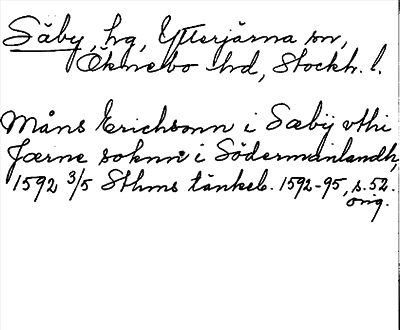 Säby, hg, Ytterjärna sn,
Öknebo hd, Stockh. l.
Måns Erichsonn i Sæbÿ vthi
Jærne soknn i Södermanlandh,
1592 3/5 Sthms tänkeb. 1592-95, s. 52.
orig.